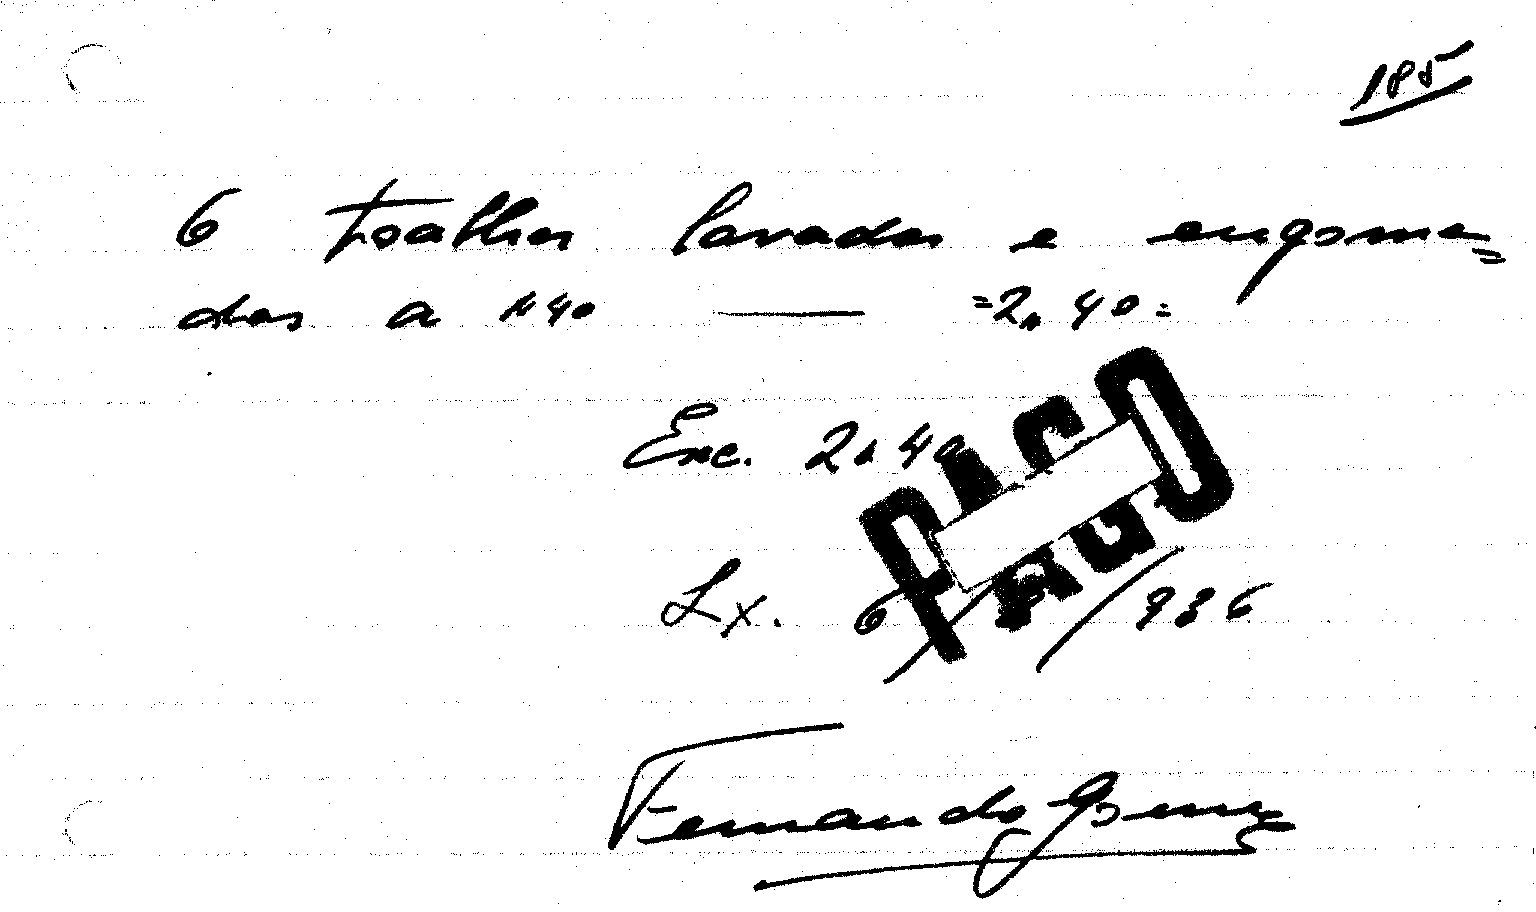 185
6 toalhas lavadas e engoma=
das a $40 —— =2$40=
Esc. 2$40
PAGO
Lx. 6/ /936
Fernando Gomes